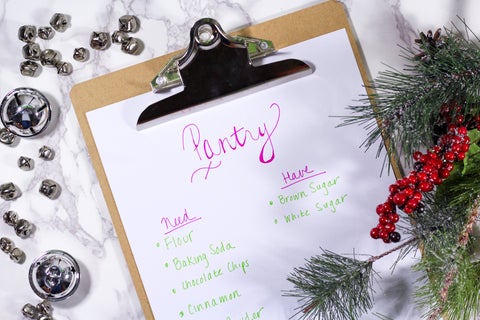 Pantry
Need
• Flour
• Baking Soda
• Chocolate Chips
• Cinnamon
Have
• Brown Sugar
• White Sugar